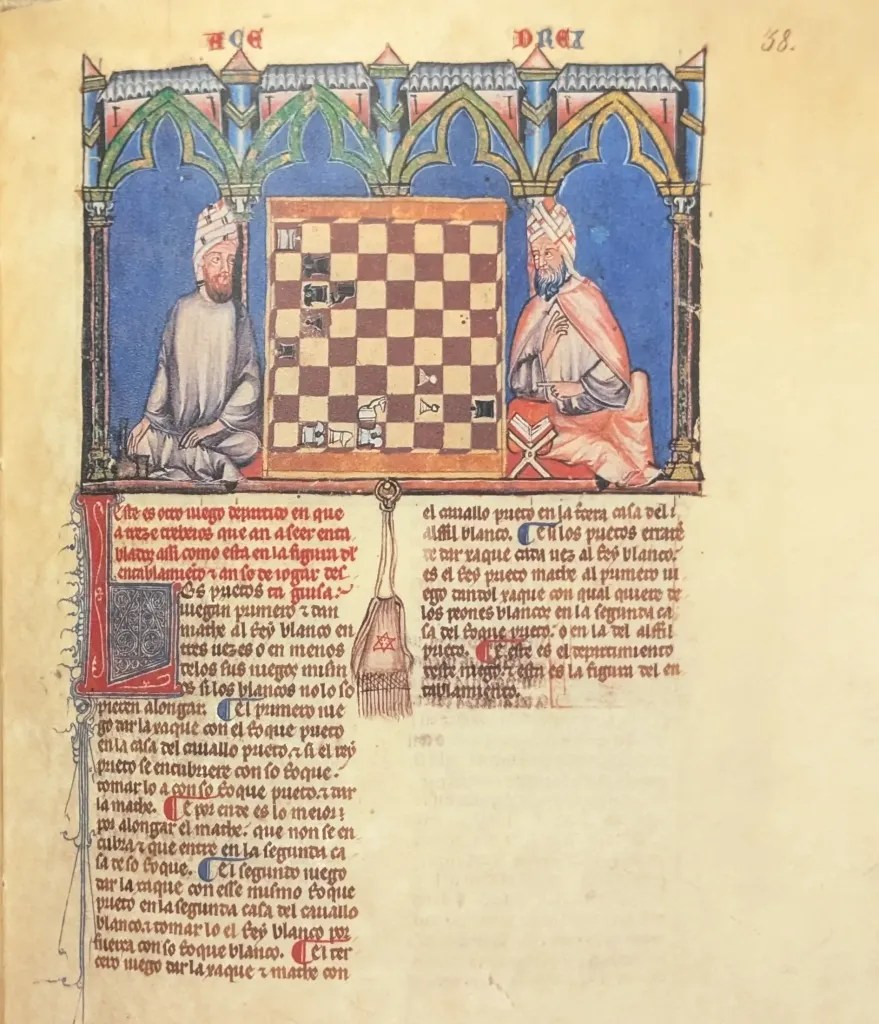 ACE DREX
38.
Este es otro iuego departido en que
a treze trebeios que an a seer enta
blados assi como esta en la figura del
entablamiento ⁊ an se de iogar des
ta guisa.
Los prietos
iuegan primero ⁊ dan
mathe al Rey blanco en
tres uezes o en menos
delos sus iuegos mismos
si los blancos no lo so
pieren alongar. ¶ El primero iue
go dar la xaque con el Roque prieto
en la casa del cauallo prieto. ⁊ si el rey
prieto se encubriere con so Roque.
tomar lo a con so Roque prieto. ⁊ dar
la mathe. ¶ E por ende es lo meior;
por alongar el mathe. que non se en
cubra ⁊ que entre en la segunda ca
sa de so Roque. ¶ El segundo iuego
dar la xaque con esse mismo Roque
prieto en la segunda casa del cauallo
blanco. ⁊ tomar lo el Rey blanco por
fuerça con so Roque blanco. ¶ El ter
cero iuego dar la xaque ⁊ mathe con
el cauallo prieto en la tercera casa del
alffil blanco. ¶ E si los prietos errare
de dar xaque cada uez al Rey blanco;
es el Rey prieto mathe al primero iu
ego dandol xaque con qual quiere de
los peones blancos en la segunda ca
sa del Roque prieto. o en la del alffil
prieto. ¶ E este es el departimiento
deste iuego. ⁊ esta es la figura del en
tablamiento.